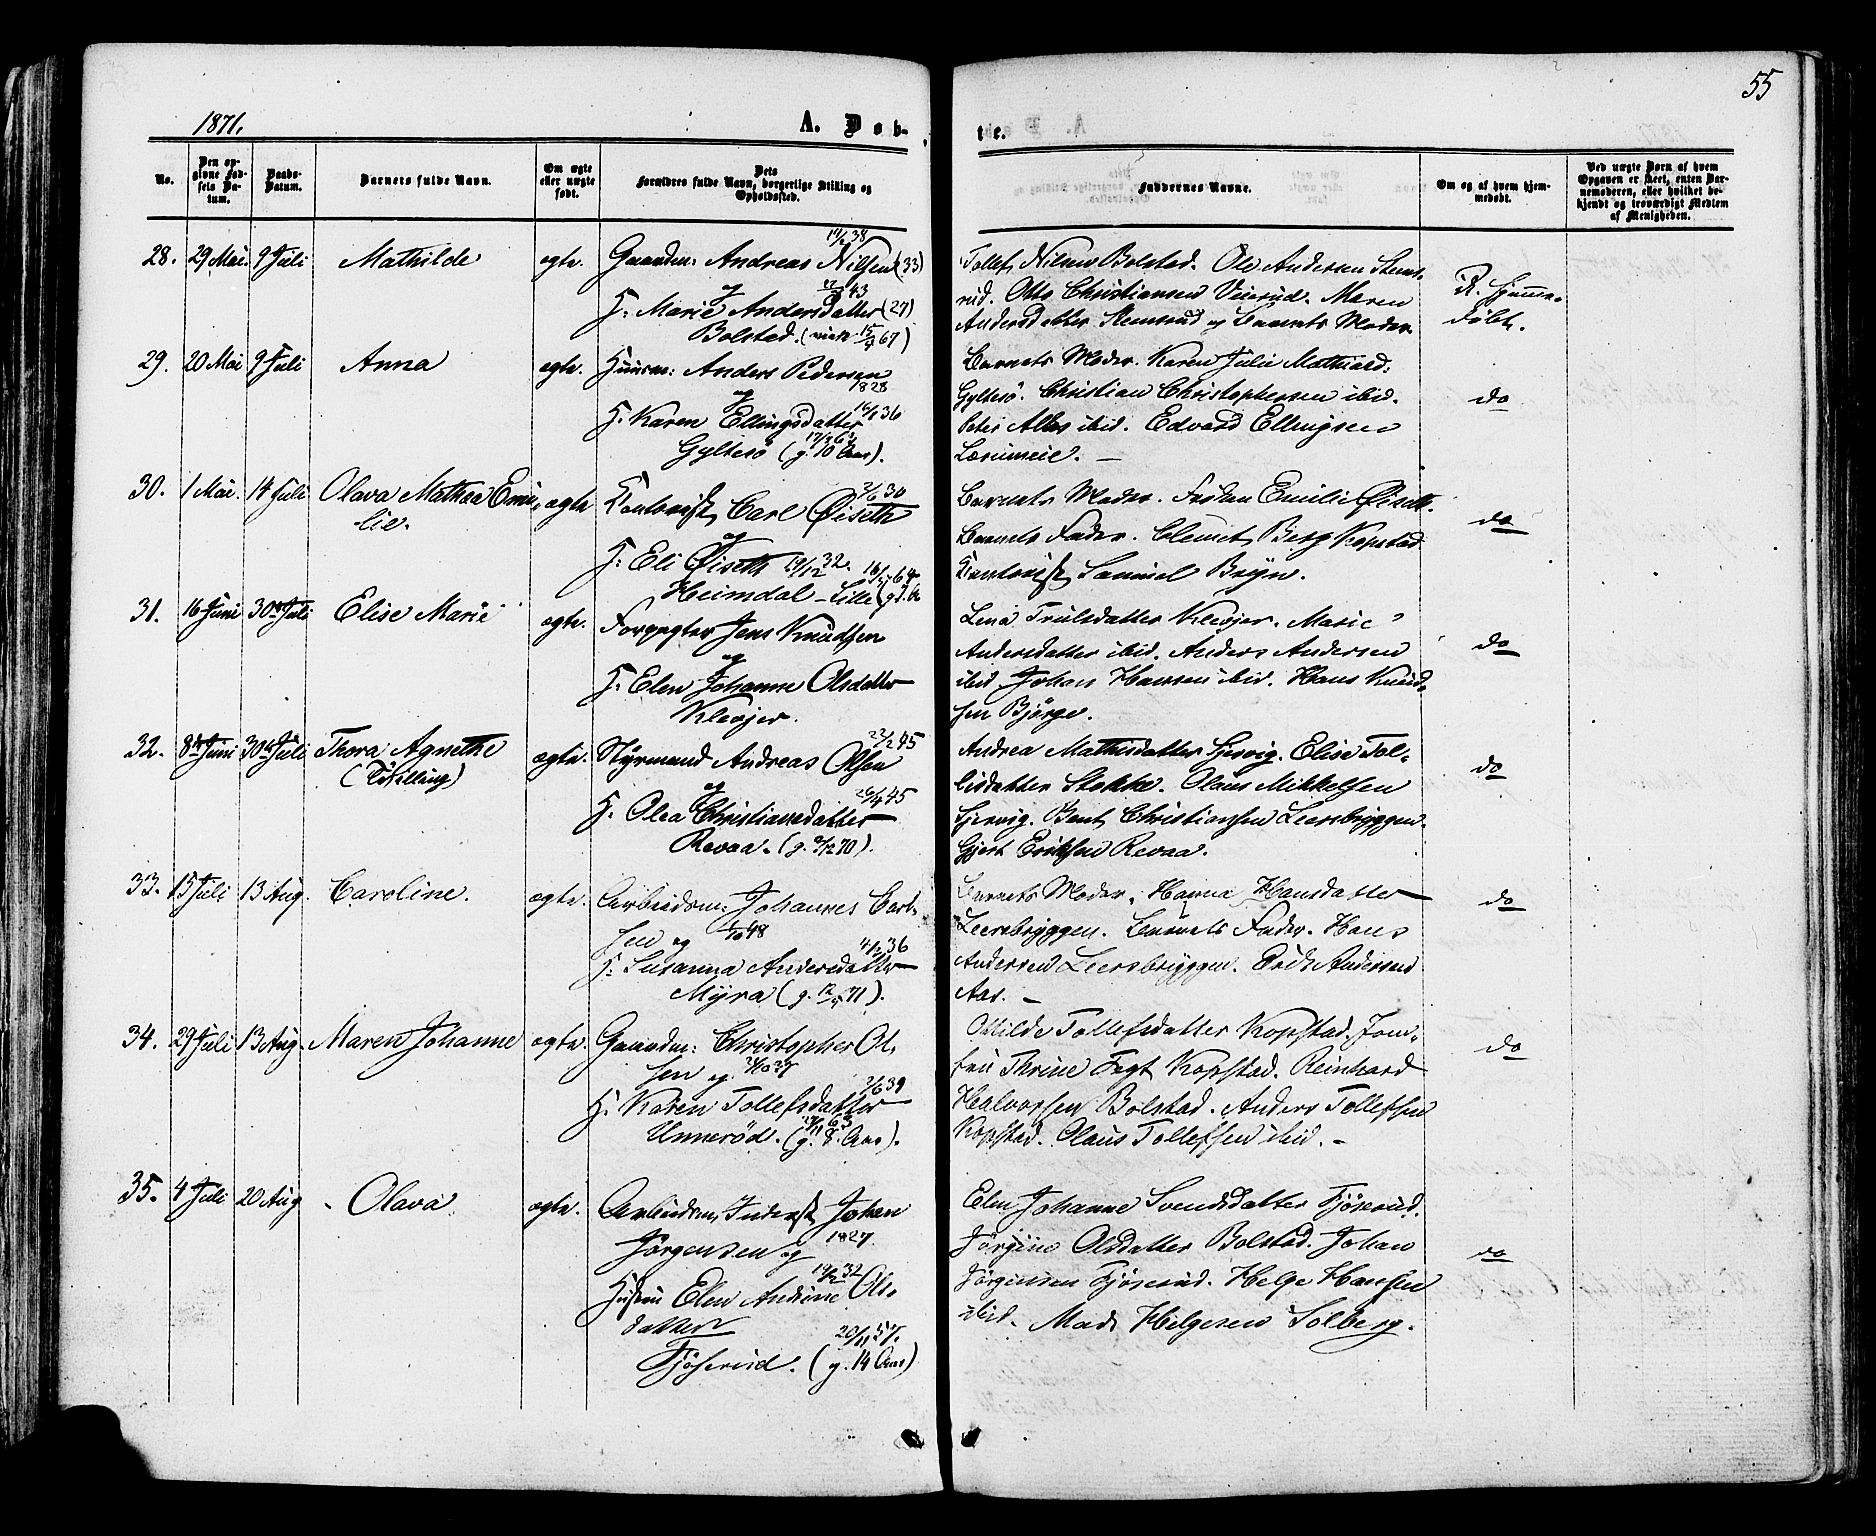 55
1871.
A. Døb-
te.
No.
Den op-
givne Fød-
sels Da-
tum.
Daabs-
Datum.
Barnets fulde Navn.
Om ægte
eller uægte
født.
Dets
Forældres fulde Navn, borgerlige Stilling og
Opholdssted.
Faddernes Navne.
Om og af hvem hjem-
medøbt.
Ved uægte Børn af hvem
Opgaven er skeet, enten Bar-
nemoderen, eller hvilket be-
kjendt og troværdigt Medlem
af Menigheden.
28. 29 Mai 9 Juli Mathilde ægte. Gaardm: Andreas Nilsen (33)
og
H: Marie Andersdatter (27)
Bolstad.
Tollef Nilsen Bolstad. Ole Andersen Stens-
rud. Otto Christiansen Vierud. Maren
Andersdatter Stensrud og Barnets Moder.
R. Hjemme-
døbt.
29. 20 Mai 9 Juli Anna ægte. Huusm: Anders Pedersen
1828
og
H: Karen Ellingsdatter
Gyltesö (g. 10 Aar).
Barnets Moder. Karen Julie Mathiasd:
Gyltesö. Christian Christophersen ibid.
Peter ibid. Edvard Ellingsen
do
30. 1 Mai. 14 Juli Olava Mathea Emi-
lie. ægte Kontorist Carl Øiseth
og
H: Eli Øiseth 19/12 32.
Heimdal - Lille
Barnets Moder. Frøken Emilie Øiseth.
Barnets Fader. Clemet Berg Kopstad
Kontorist Samuel Bryn.
do
31. 16 Juni 30te Juli Elise Marie ægte. Forpagter Jens Knudsen
og
H: Elen Johanne Olsdatter
Klevjer.
Lina Trulsdatter Klevjer. Marie
Andersdatter ibid. Anders Andersen
ibid Johan Hansen ibid. Hans Knud-
sen Bjørge.
do
32. 8de Juni 30te Juli Thora Agnethe
(Tvilling) ægte. Styrmand Andreas Olsen
22/2 45
og
26/4 45
H: Olea Christiansdatter
Revaa. (g. 2/12 70).
Andrea Mathisdatter Sjervig. Elise Tol-
lisdatter Stokke. Olaus Mikkelsen
Sjervig. Bent Christiansen Leersbryggen.
Gjert Eriksen Revaa.
do
33. 15 Juli 13 Aug. Caroline. ægte. Arbeidsm: Johannes Carl-
sen og
4/2 36
H: Susanna Andersdatter
Myra (g. 12/4 71).
Barnets Moder. Hanna Hansdatter
Leersbryggen. Barnets Fader. Hans
Andersen Leersbryggen. Andersen
Aas. -
do
34. 29 Juli 13 Aug. Maren Johanne ægte. Gaardm: Christopher Ol-
sen og. 24/10 27
2/6 39
H: Karen Tollefsdatter
Unnerød. (g. 8 Aar).
Othilde Tollefsdatter Kopstad. Jom-
fru Thrine Fegt Kopstad. Reinhard
Halvorsen Bolstad. Anders Tollefsen
Kopstad. Olaus Tollefsen ibid. -
do
35. 4 Juli 20 Aug Olava. ægte. Arbeidsm Inderst Johan
Jörgensen og 1827.
Hustru Elen Andrine Ols-
datter
20/11 57.
Fjöserud. (g. 14 Aar)
Elen Johanne Svendsdatter Fjöserud.
Jörgine Olsdatter Bolstad. Johan
Jörgensen Fjöserud. Helge Hansen
ibid. Mads Helgesen Solberg.
do